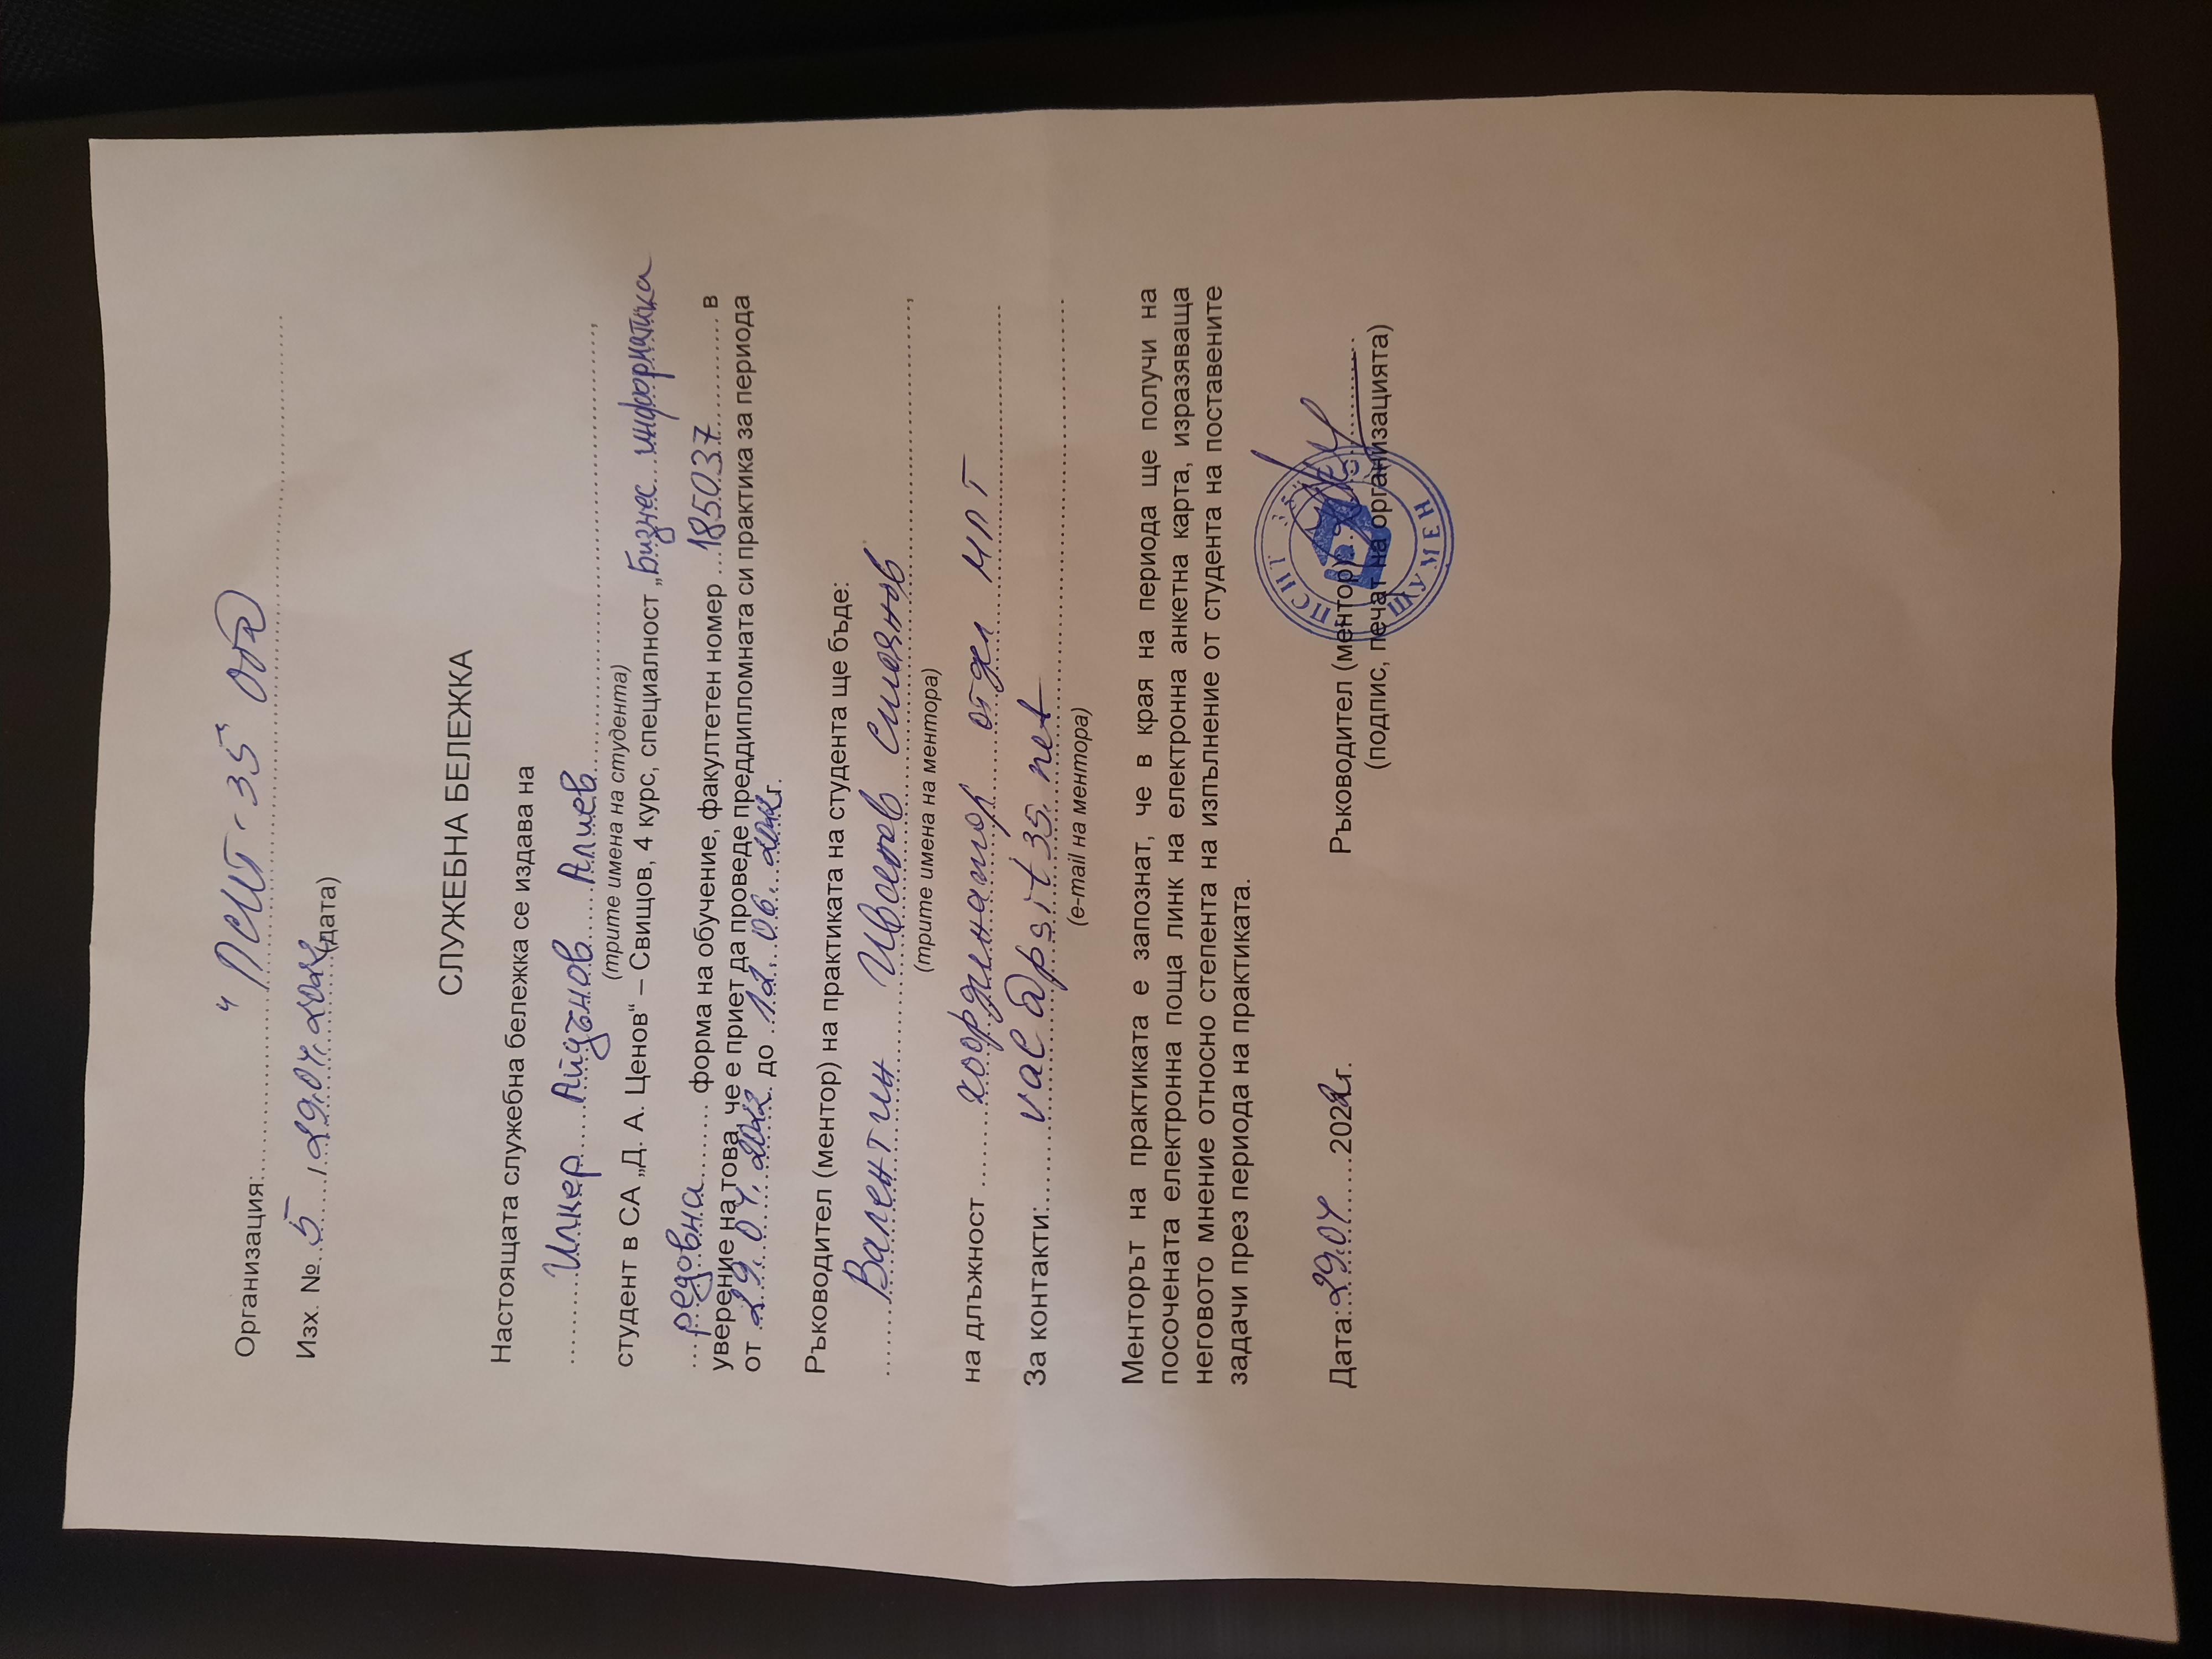 Организация: "ПСИТ-35" ООД
Изх. № 5 / 29.04.2022 (дата)
СЛУЖЕБНА БЕЛЕЖКА
Настоящата служебна бележка се издава на
Илкер Айдънов Алиев,
(трите имена на студента)
студент в СА „Д. А. Ценов“ – Свищов, 4 курс, специалност „Бизнес информатика
редовна форма на обучение, факултетен номер 185037 в
уверение на това, че е приет да проведе преддипломната си практика за периода
от 29.04.2022 до 12.06.2022г.
Ръководител (ментор) на практиката на студента ще бъде:
Валентин Иванов Стоянов,
(трите имена на ментора)
на длъжност координатор отдел МЛТ
За контакти: val@psit35.net
(e-mail на ментора)
Менторът на практиката е запознат, че в края на периода ще получи на
посочената електронна поща линк на електронна анкетна карта, изразяваща
неговото мнение относно степента на изпълнение от студента на поставените
задачи през периода на практиката.
Дата: 29.04 2022г. Ръководител (ментор):
(подпис, печат на организацията)
ПСИТ 35" ООД
ШУМЕН